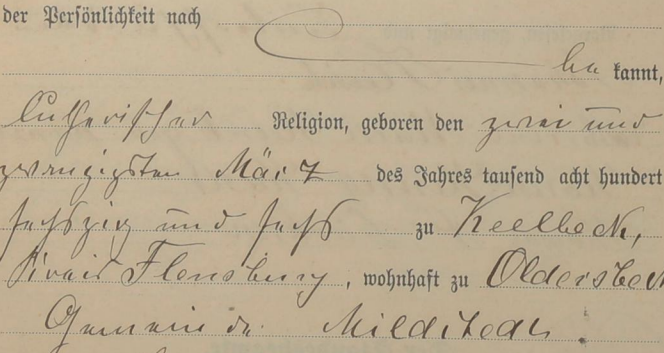 der Persönlichkeit nach
be kannt,
lutherischer Religion, geboren den zwei und
zwanzigsten März des Jahres tausend acht hundert
sechszig und sechs zu Keelbek,
Kreis Flensburg, wohnhaft zu Oldersbek
Gemeinde Mildstedt.